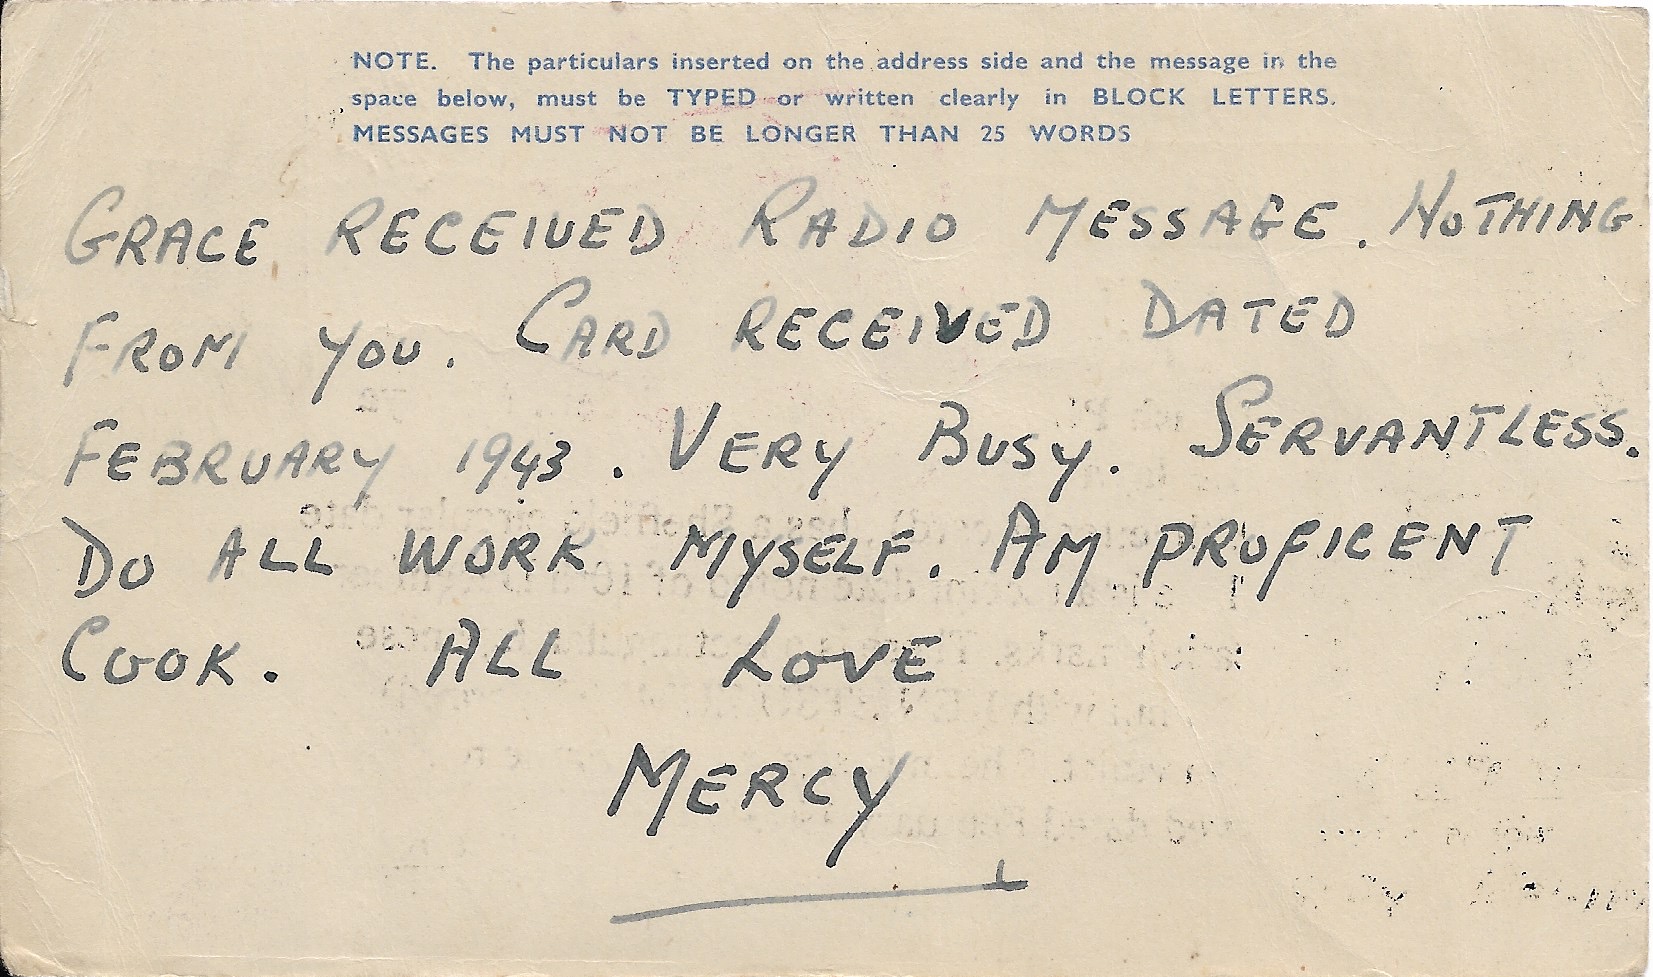 NOTE. The particulars inserted on the address side and the message in the
space below, must be TYPED or written clearly in BLOCK LETTERS.
MESSAGES MUST NOT BE LONGER THAN 25 WORDS
GRACE RECEIVED RADIO MESSAGE. NOTHING
FROM YOU. CARD RECEIVED DATED
FEBRUARY 1943. VERY BUSY. SERVANTLESS.
DO ALL WORK MYSELF. AM PROFICENT
COOK. ALL LOVE
MERCY